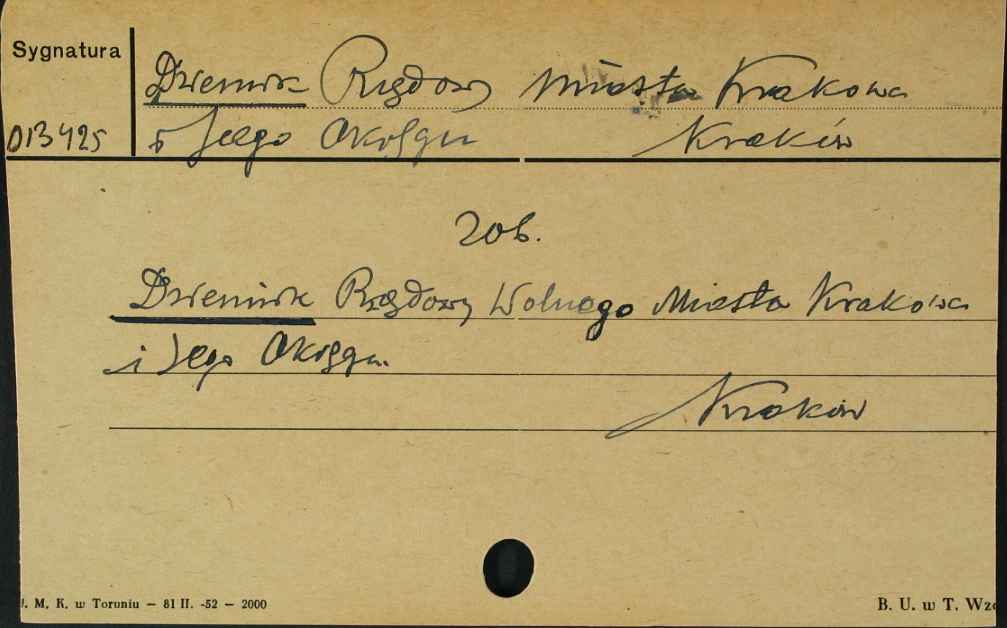 Sygnatura
Dziennik Rządowy Miasta Krakowa
013425
i Jego Okręgu Kraków
zob.
Dziennik Rządowy Wolnego Miasta Krakowa
i Jego Okręgu.
Kraków
. M. K. w Toruniu — 81 II. -52 — 2000
B. U. w T. Wzo